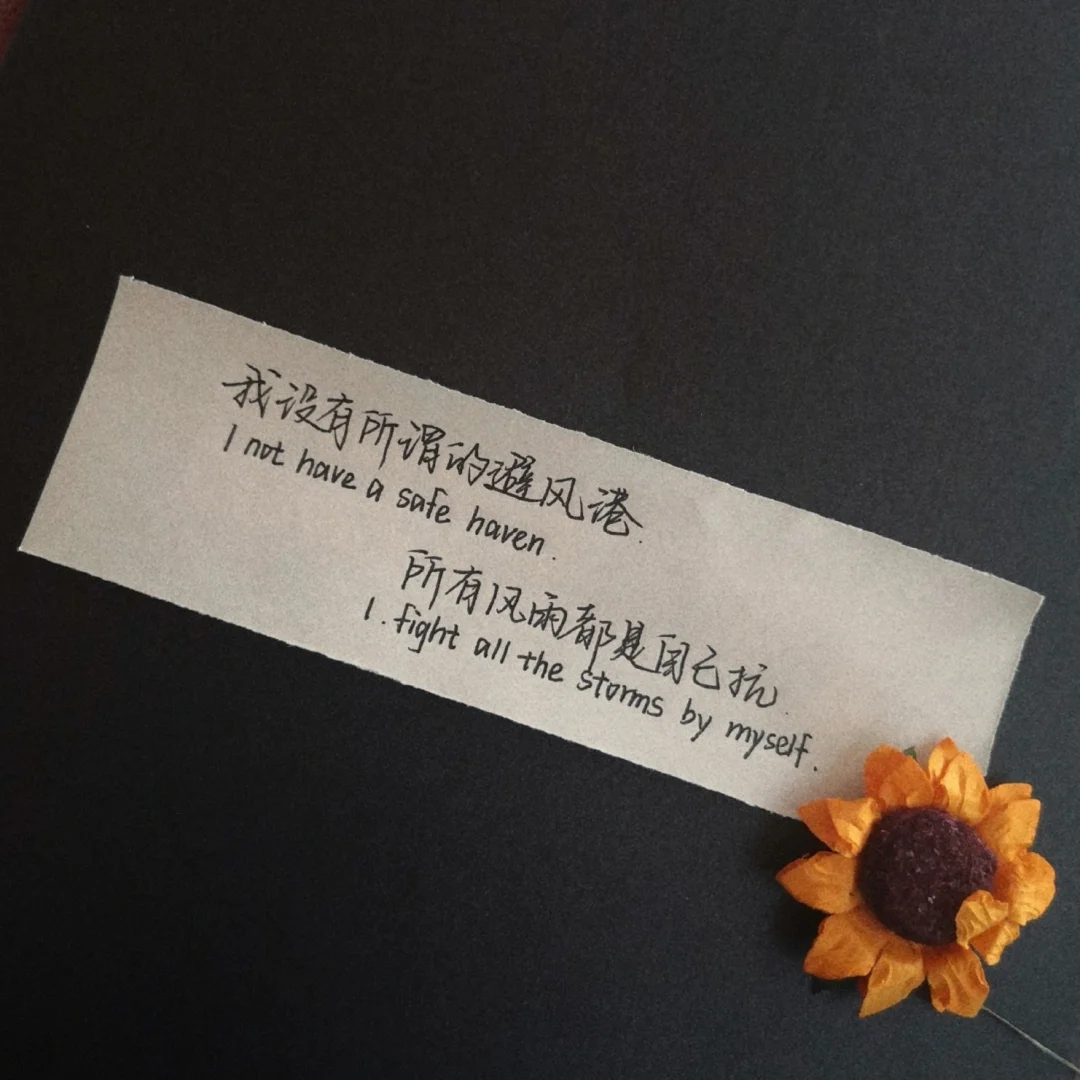 我没有所谓的避风港.
I not have a safe haven.
所有风雨都是自己抗.
I. fight all the storms by myself.